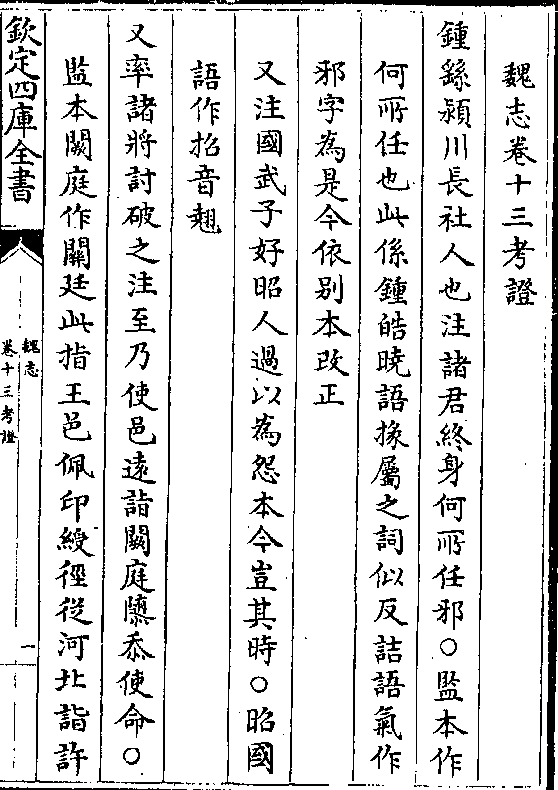 魏志卷十三考證
鍾繇潁川長社人也注諸君終身何所任邪○監本作
何所任也此係鍾皓曉語掾屬之詞似反詰語氣作
邪字為是今依别本改正
又注國武子好昭人過以為怨本今豈其時○昭國
語作招音翹
又率諸將討破之注至乃使邑遠詣闕庭隳忝使命○
監本闕庭作闗廷此指王邑佩印綬徑從河北詣許
欽定四庫全書
魏志
卷十三考證
一